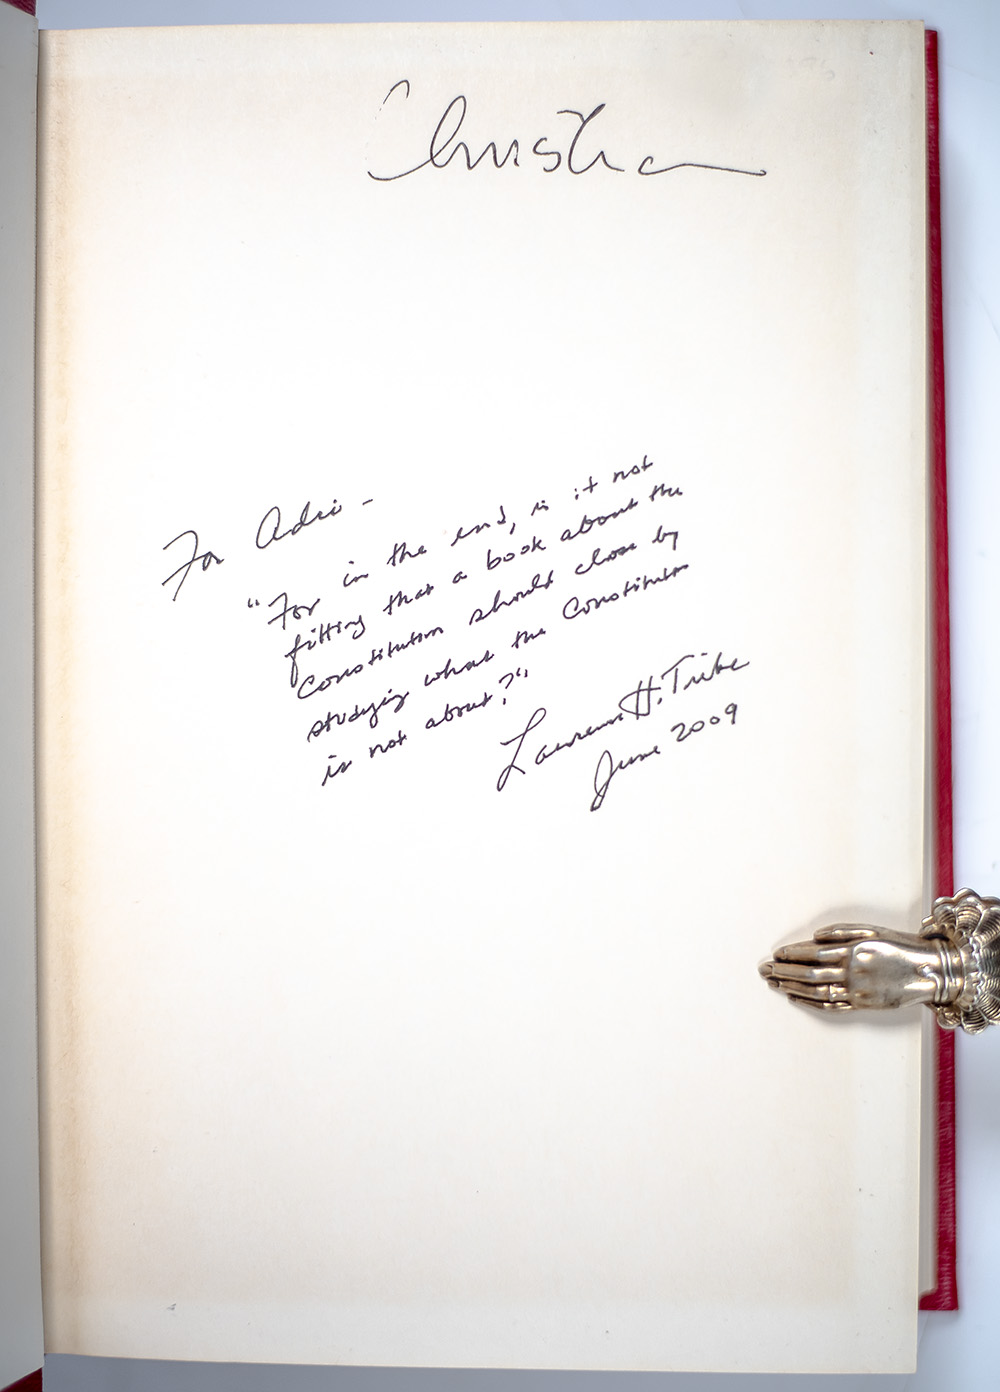 Christian
For Adri -
"For in the end, is it not
fitting that a book about the
Constitution should close by
studying what the Constitution
is not about?"
Laurence H. Tribe
June 2009